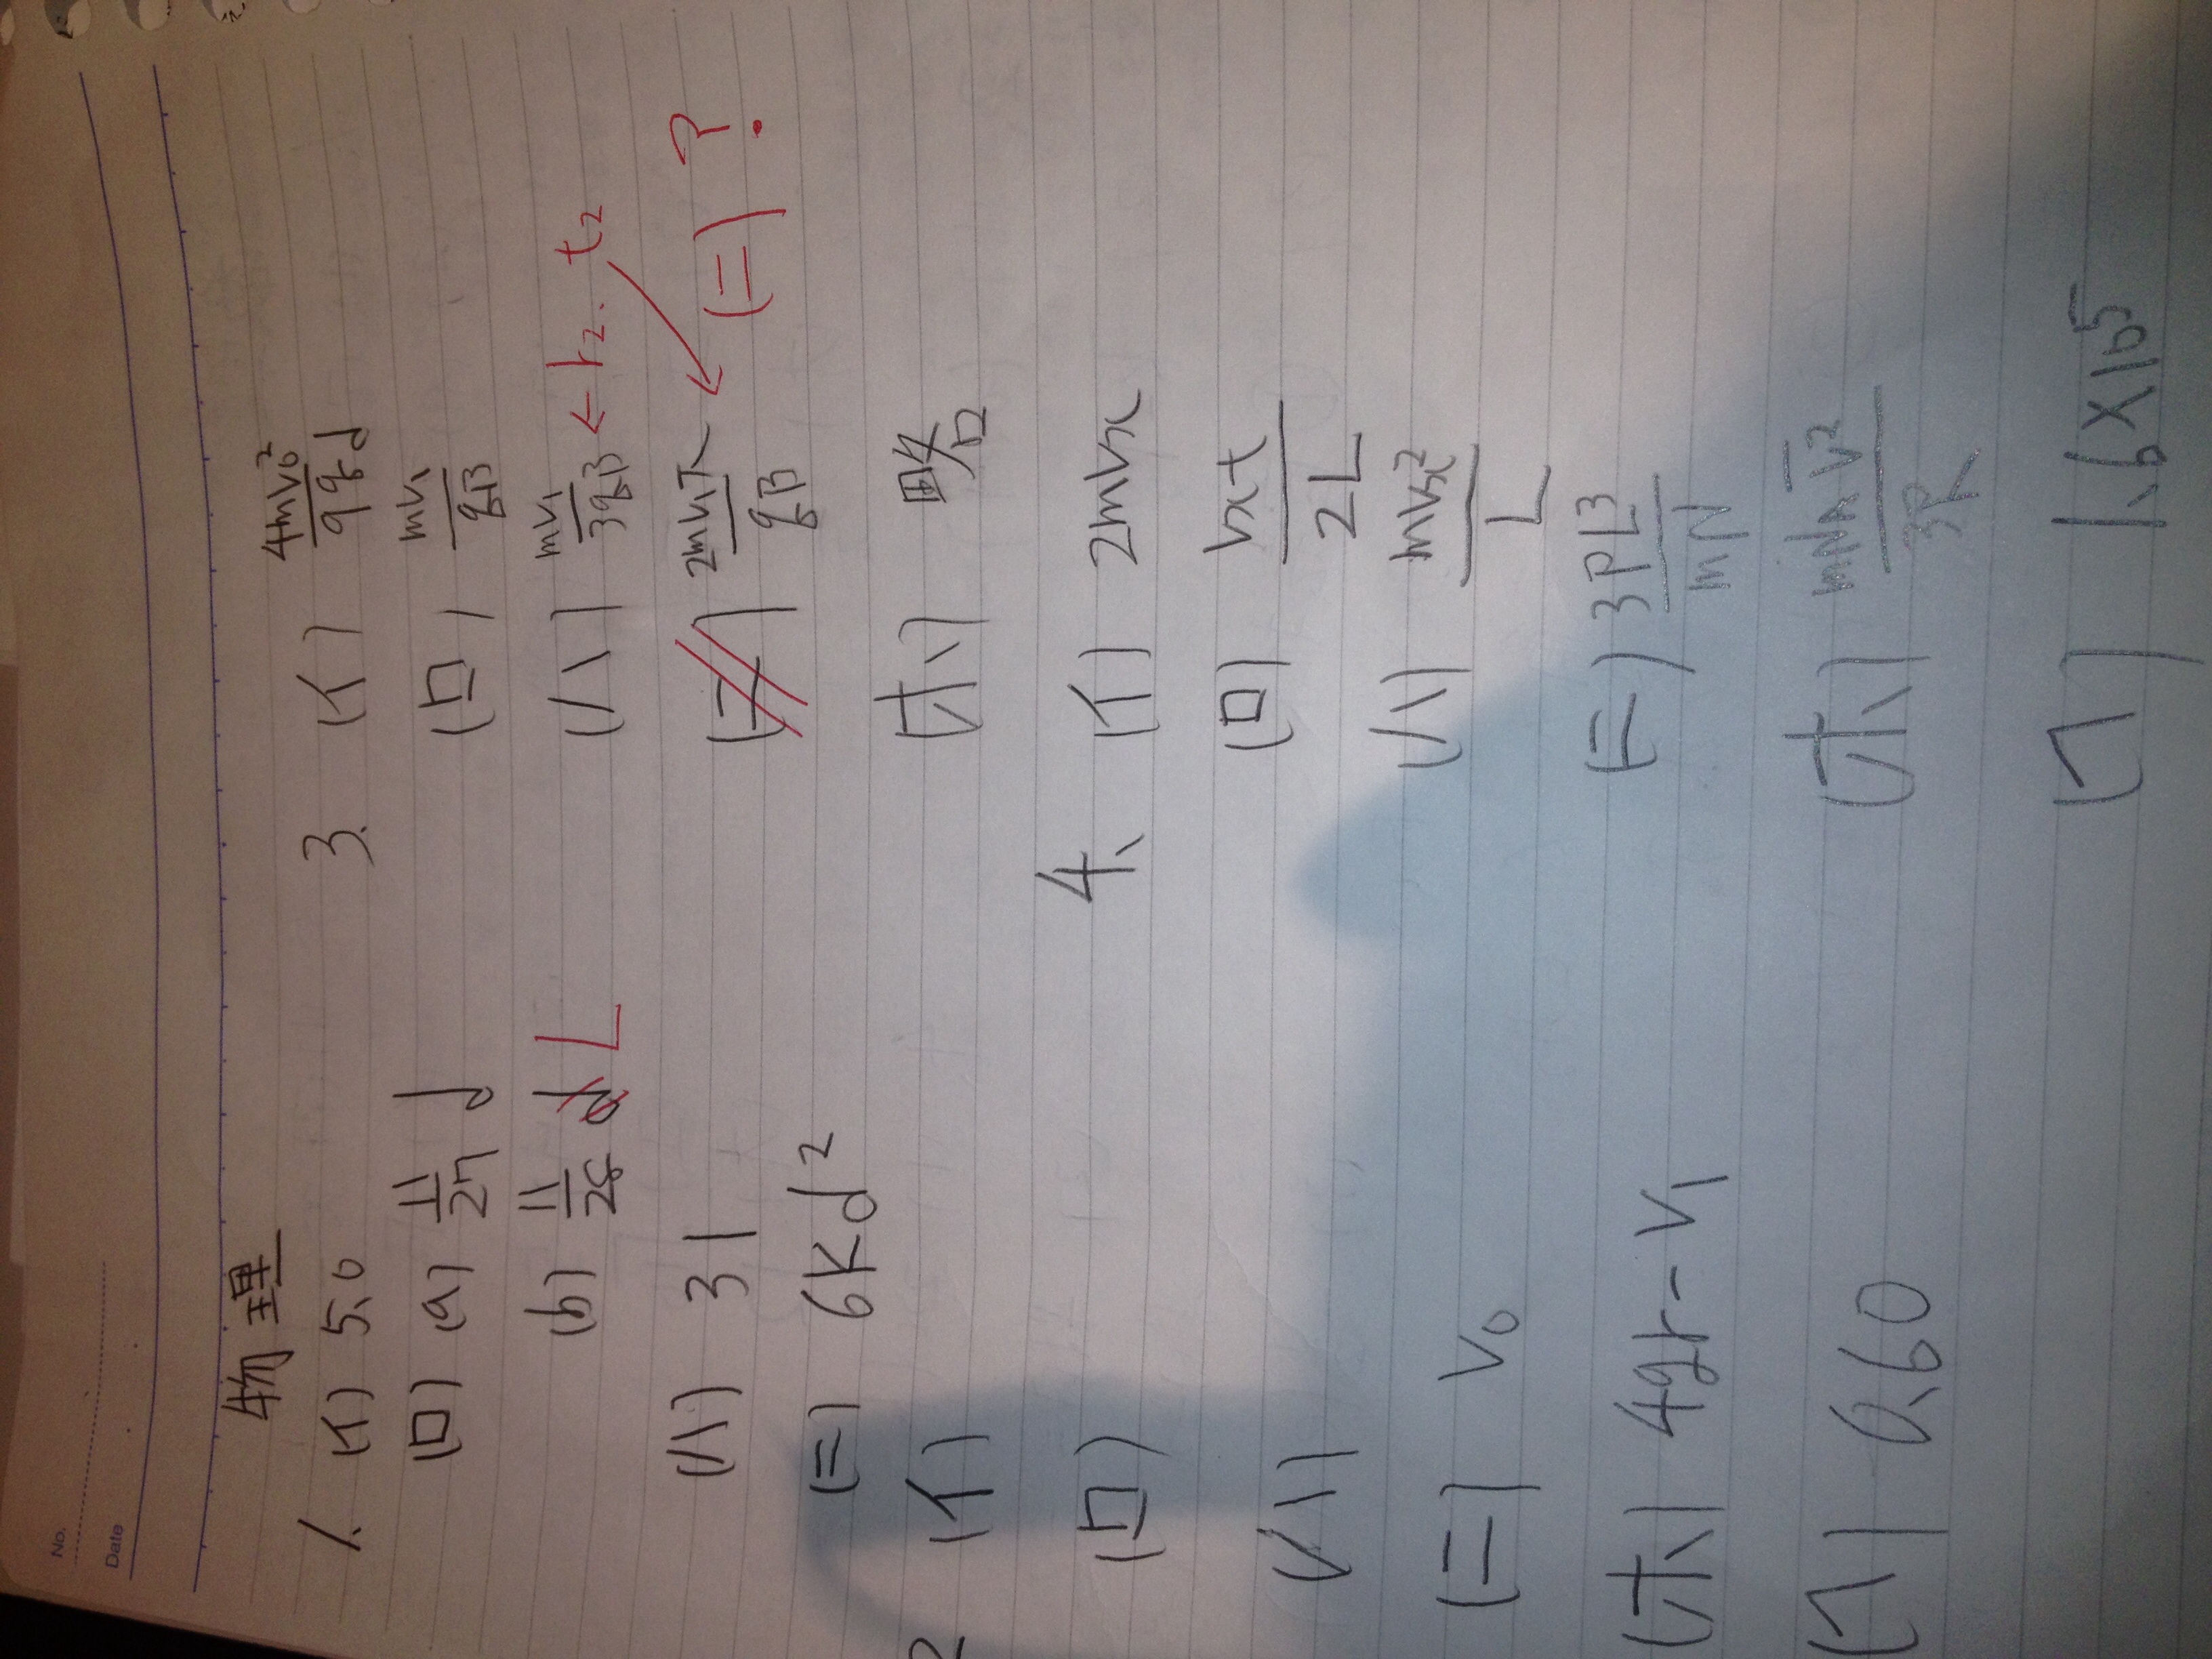 No.
Date
物理
1. (イ) 5.0
(ロ) (a) 11/27 d
(b) 11/28 d L
(ハ) 31
(ニ) 6kd²
2 (イ)
(ロ)
(ハ)
(ニ) V₀
(ホ) 4gr-V₁
(ヘ) 0.60
3. (イ) 4mV₀²/9qd
(ロ) mV₁/qB
(ハ) mV₁/3qB ← r₂. t₂
(ニ) 2mV₁π/qB (ニ)?
(ホ) 略
4. (イ) 2mVx
(ロ) Vxt/2L
(ハ) mVx²/L
(ニ) 3PL³/mN
(ホ) mNAV²/3R
(ヘ) 1.6×10⁵